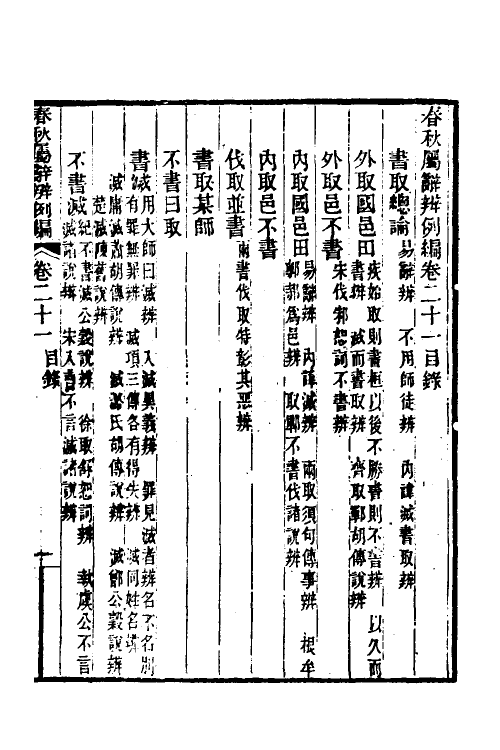 春秋屬辭辨例編卷二十一目錄
書取總論 易辭辨 不用師徒辨 內諱滅書取辨
外取國邑田 疾始取則書桓以後不勝書則不書辨 以久而
書辨 滅而書取辨 齊取鄆胡傳說辨
外取邑不書 宋伐邾恕詞不書辨
內取國邑田 易辭辨 內諱滅辨 兩取須句傳事辨 根牟
鄟邿為邑辨 取鄆不書伐諸說辨
內取邑不書
伐取並書 兩書伐取特彰其惡辨
書取某師
不書日取
書滅 用大師曰滅辨 入滅異義辨 罪見滅者辨名不名別
有罪無罪辨 滅項三傳各有得失辨 滅同姓名辨
滅庸滅蕭胡傳說辨 滅潞氏胡傳說辨 滅鄫公穀說辨
楚滅陳書說辨
不書滅 滅紀不書滅公穀說辨 徐取舒恕詞辨 執虞公不言
滅諸說辨 宋入曹不言滅諸說辨
春秋屬辭辨例編 卷二十一 目錄 一